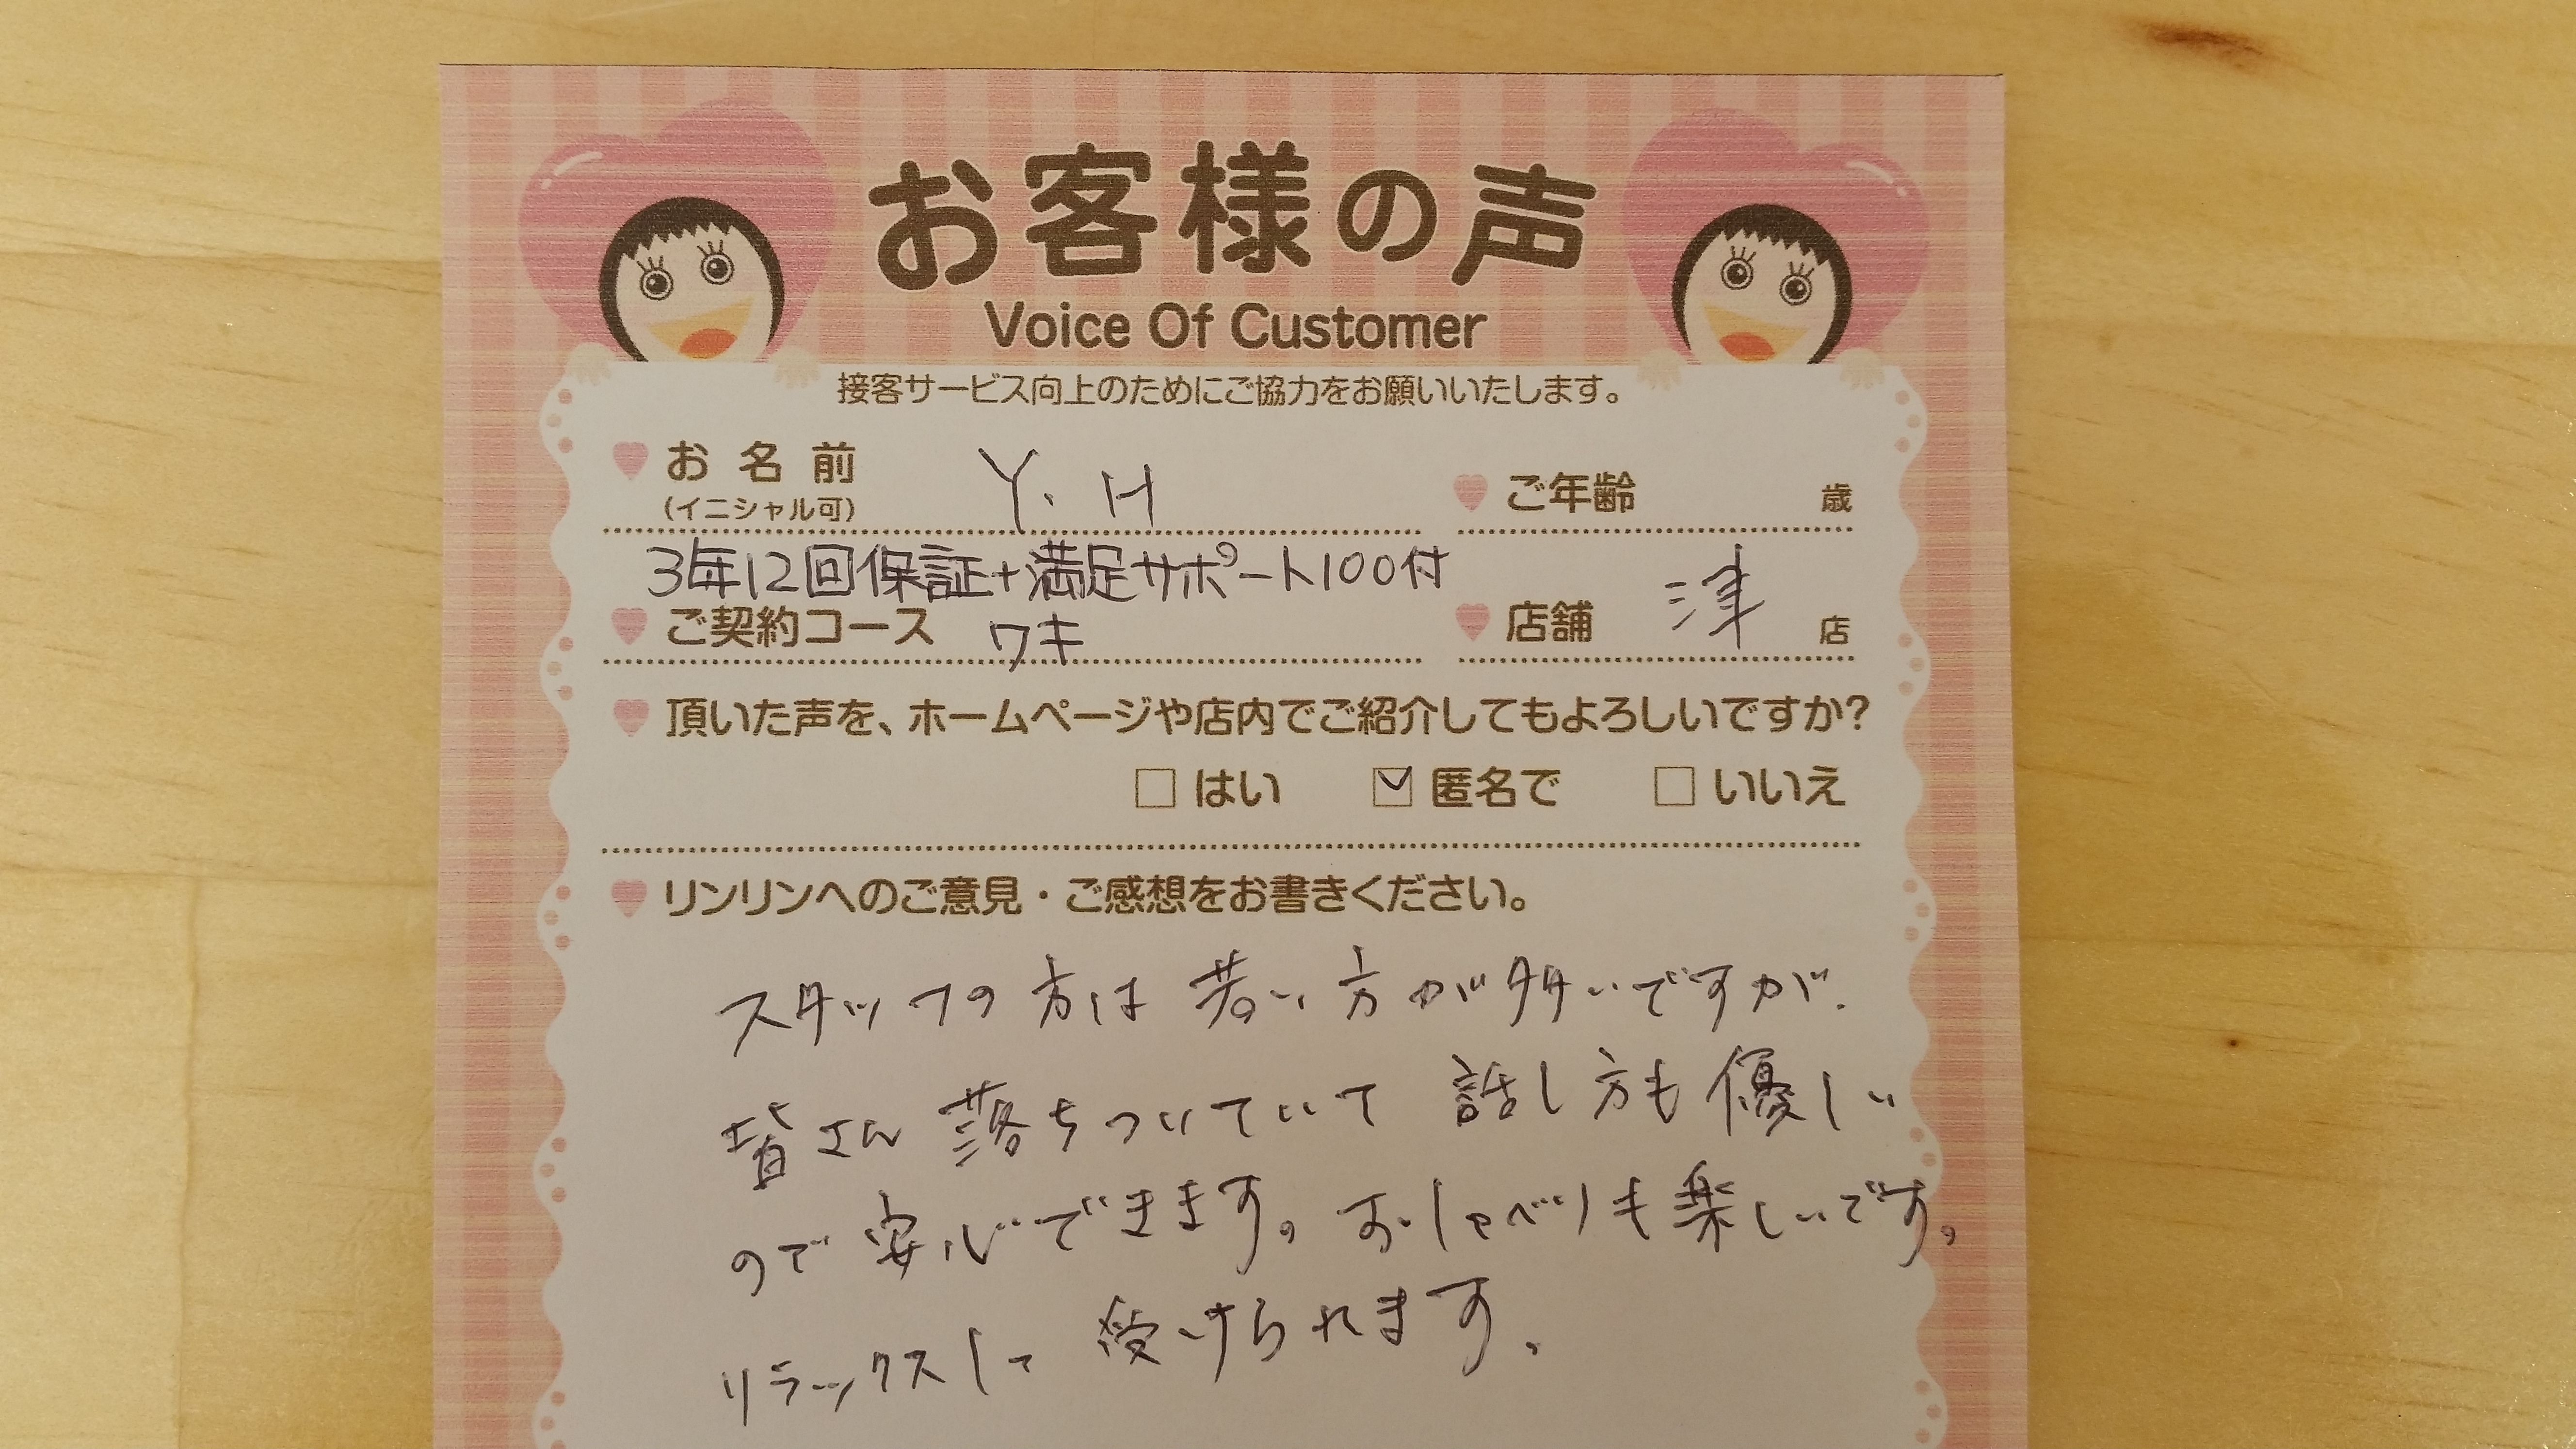 お客様の声
Voice Of Customer
接客サービス向上のためにご協力をお願いいたします。
お名前 Y. H
(イニシャル可)
ご年齢 歳
3年12回保証+満足サポート100付
ご契約コース ワキ
店舗 津 店
頂いた声を、ホームページや店内でご紹介してもよろしいですか?
はい 匿名で いいえ
リンリンへのご意見・ご感想をお書きください。
スタッフの方は若い方が多いですが、
皆さん落ちついていて話し方も優しい
ので安心できます。おしゃべりも楽しいです。
リラックスして受けられます。